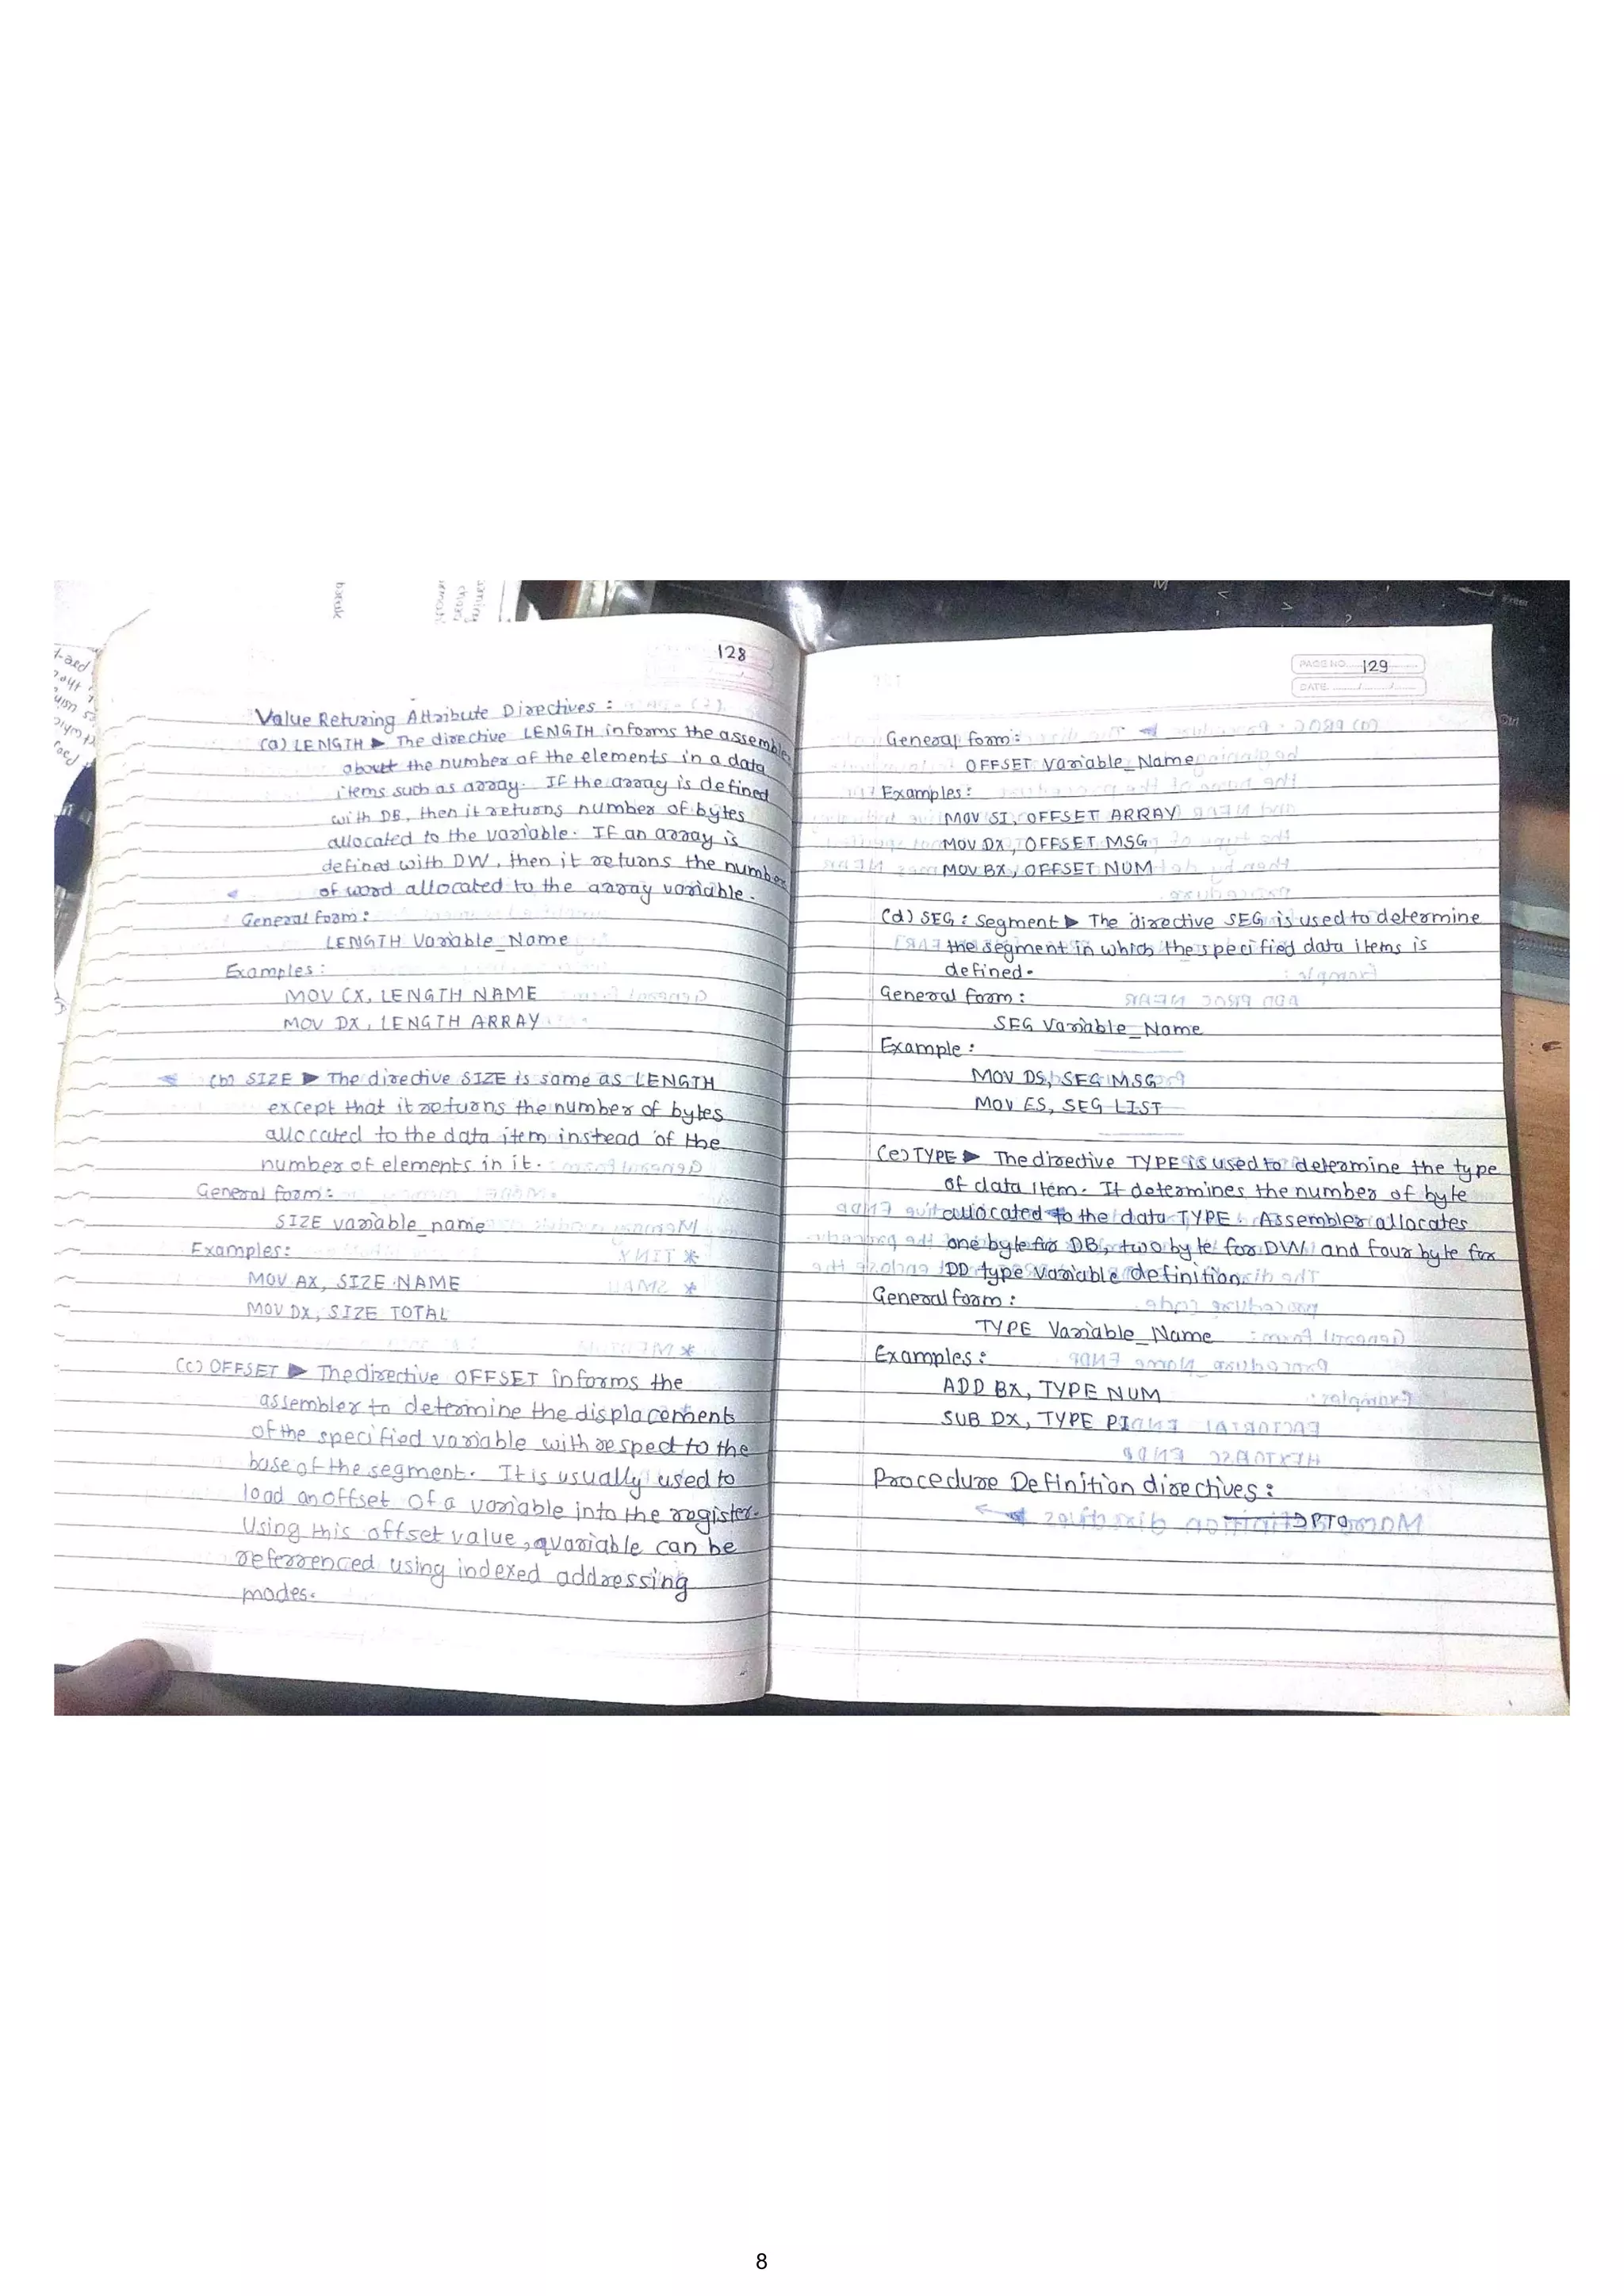 128
Value Returing Attribute Directives :
(a) LENGTH ▶ The directive LENGTH informs the assembler
about the number of the elements in a data
items such as array. If the array is defined
with DB, then it returns number of bytes
allocated to the variable. If an array is
defined with DW, then it returns the number
of word allocated to the array variable.
General form :
LENGTH Variable_Name
Examples :
MOV CX, LENGTH NAME
MOV DX, LENGTH ARRAY
(b) SIZE ▶ The directive SIZE is same as LENGTH
except that it returns the number of bytes
allocated to the data item instead of the
number of elements in it.
General form :
SIZE variable_name
Examples:
MOV AX, SIZE NAME
MOV DX, SIZE TOTAL
(c) OFFSET ▶ The directive OFFSET informs the
assembler to determine the displacement
of the specified variable with respect to the
base of the segment. It is usually used to
load an offset of a variable into the register.
Using this offset value, a variable can be
referrenced using indexed addressing
modes.
PAGE NO. 129
DATE / /
General form :
OFFSET Variable_Name
Examples :
MOV SI, OFFSET ARRAY
MOV DX, OFFSET MSG
MOV BX, OFFSET NUM
(d) SEG : Segment ▶ The directive SEG is used to determine
the segment in which the specified data items is
defined.
General form :
SEG Variable_Name
Example :
MOV DS, SEG MSG
MOV ES, SEG LIST
(e) TYPE ▶ The directive TYPE is used to determine the type
of data item. It determines the number of byte
allocated to the data TYPE. Assembler allocates
one byte for DB, two byte for DW and four byte for
DD type variable definition.
General form :
TYPE Variable_Name
Examples :
ADD BX, TYPE NUM
SUB DX, TYPE PI
Procedure Definition directives :
8